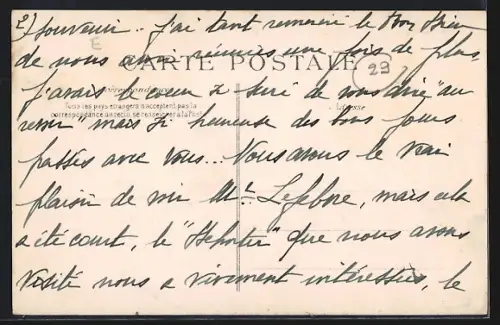 2) souvenir. j'ai tant remercié le Bon Dieu
E
de nous avoir réunies une fois de plus,
CARTE POSTALE
29
j'avais le cœur si serré de vous dire "au
Correspondance
Tous les pays étrangers n'acceptent pas la
correspondance au recto, se renseigner à la Poste
Adresse
revoir" mais si heureuse des bons jours
passés avec vous... Nous avons le vrai
plaisir de voir Mr. Lefebvre, mais cela
a été court, le "Reporter" que nous avons
visité nous a vivement intéressées, le